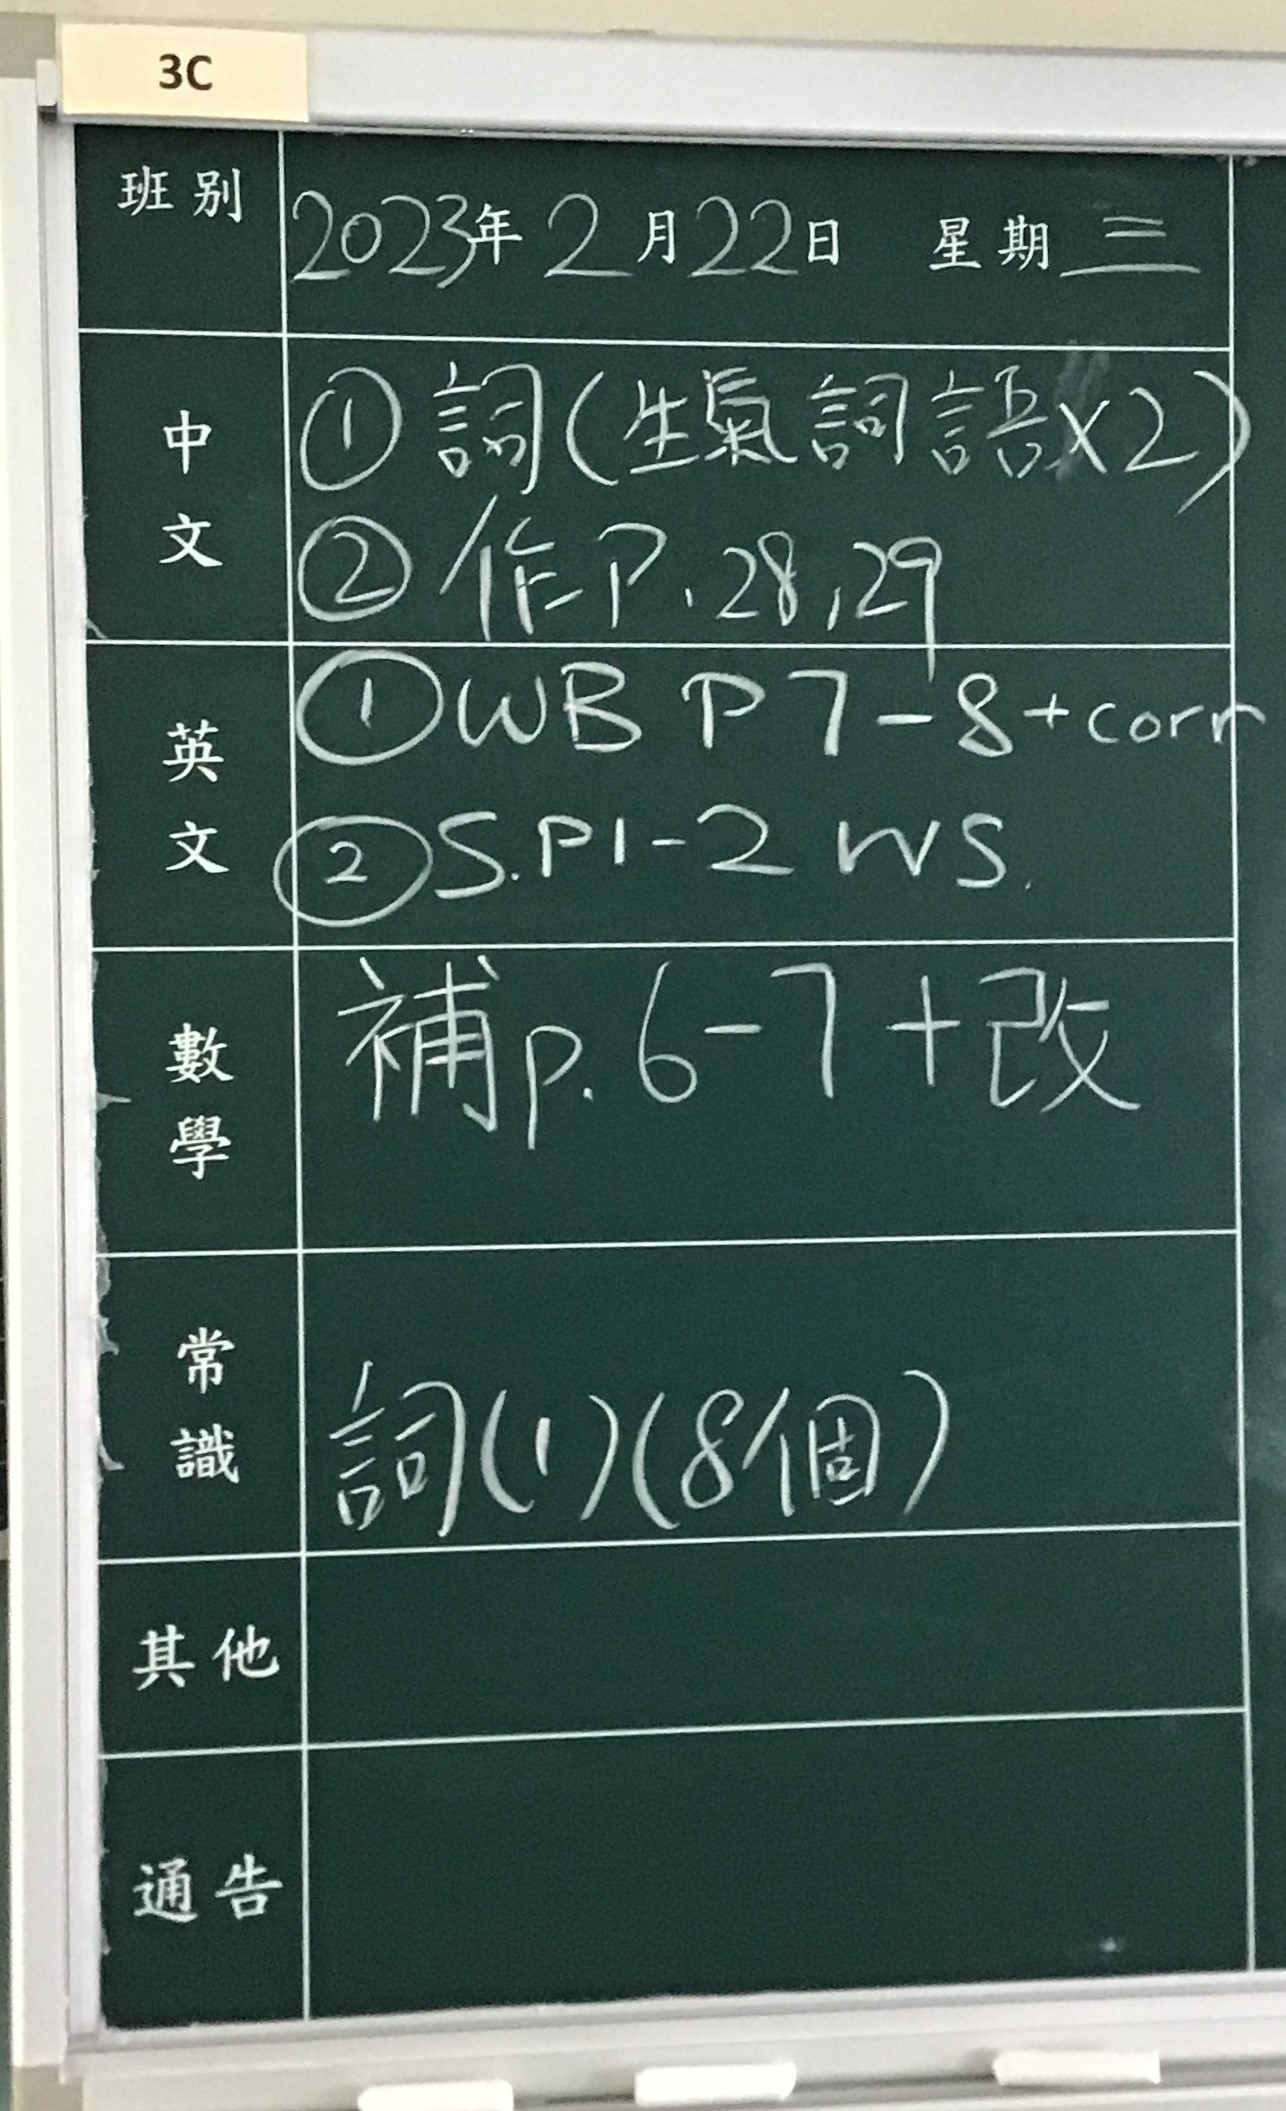 3C
班別
2023年2月22日 星期三
中文
①詞(生氣詞語×2)
②作P.28,29
英文
①WB P7-8+corr
②S.P1-2 WS.
數學
補p.6-7+改
常識
詞(1)(8個)
其他
通告